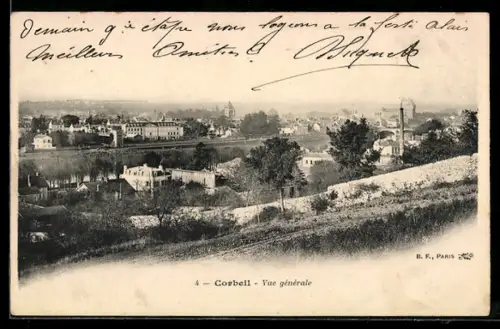 Demain 9è étape nous logeons a la ferti Alais
Meilleurs Amitiés
4 — Corbeil - Vue générale
B. F., PARIS